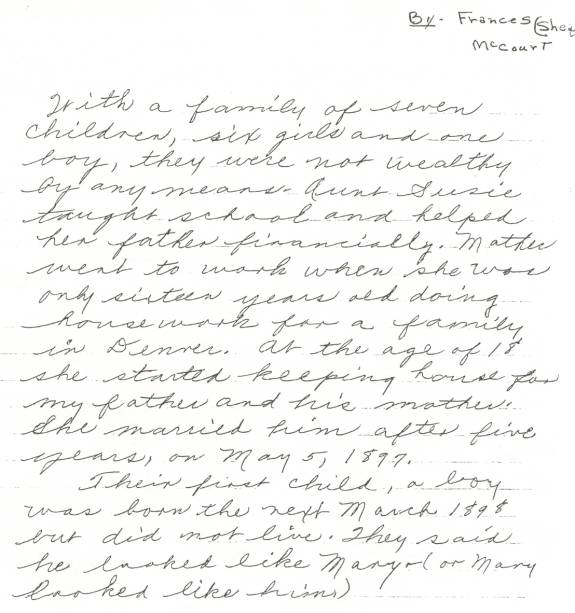 By- Frances (Shex
McCourt
With a family of seven
children, six girls and one
boy, they were not wealthy
by any means. Aunt Susie
taught school and helped
her father financially. Mother
went to work when she was
only sixteen years old doing
housework for a family
in Denver. At the age of 18
she started keeping house for
my father and his mother.
She married him after five
years, on May 5, 1897.
Their first child, a boy
was born the next March 1898
but did not live. They said
he looked like Mary-(or Mary
looked like him.)